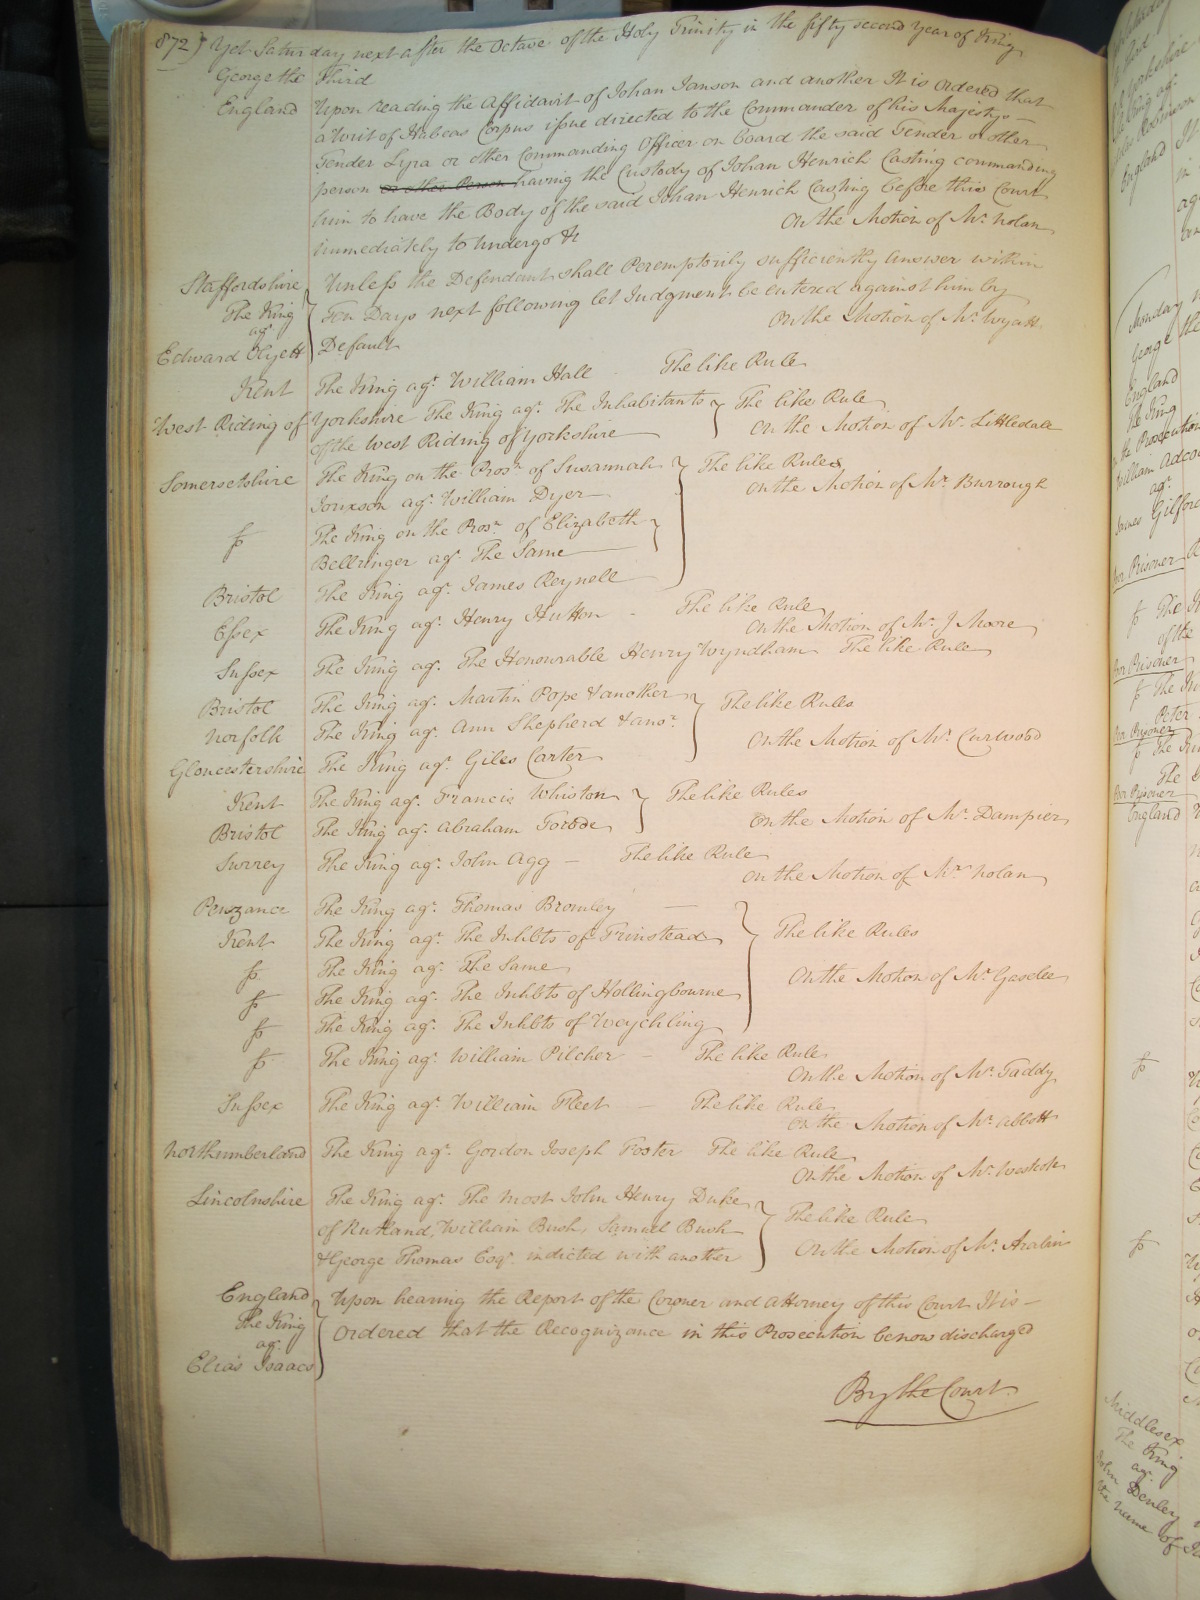 872) Yet Saturday next after the Octave of the Holy Trinity in the fifty second Year of King
George the Third
England Upon reading the Affidavit of Johan Janson and another It is ordered that
a Writ of Habeas Corpus issue directed to the Commander of his Majestys
Tender Lyra or other Commanding Officer on board the said Tender or other
person or other Person having the Custody of Johan Henrich Casting commanding
him to have the Body of the said Johan Henrich Casting before this Court
immediately to undergo &c On the Motion of Mr. Nolan
Staffordshire Unless the Defendant shall Peremptorily sufficiently Answer within
The King Ten Days next following let Judgment be entered against him by
agt. On the Motion of Mr. Wyatt
Edward Default
Kent The King agt. William Hall The like Rule
West Riding of Yorkshire The King agt. The Inhabitants The like Rule
of the West Riding of Yorkshire On the Motion of Mr. Littledale
Somersetshire The King on the Prosn. of Susannah The like Rules
agt. William Dyer On the Motion of Mr. Burrough
fs The King on the Prosn. of Elizabeth
Bellringer agt. The Same
Bristol The King agt. James Reynell
Essex The King agt. Henry Hutton - The like Rule
On the Motion of Mr. J Moore
Sussex The King agt. The Honourable Henry Wyndham The like Rule
Bristol The King agt. Martin Pope & another The like Rules
Norfolk The King agt. Ann Shepherd & anor.
On the Motion of Mr. Curwood
Gloucestershire The King agt. Giles Carter
Kent The King agt. Francis Whiston The like Rules
Bristol The King agt. Abraham Torode On the Motion of Mr. Dampier
Surrey The King agt. John Agg - The like Rule
On the Motion of Mr. Nolan
Penzance The King agt. Thomas Bromley
Kent The King agt. The Inhbts of Frinstead The like Rules
fs The King agt. The Same
fs The King agt. The Inhbts of Hollingbourne On the Motion of Mr. Gaselee
fs The King agt. The Inhbts of Wychling
fs The King agt. William Pilcher - The like Rule
On the Motion of Mr. Taddy
Sussex The King agt. William Fleet - The like Rule
On the Motion of Mr. Abbott
Northumberland The King agt. Gordon Joseph Foster The like Rule
On the Motion of Mr.
Lincolnshire The King agt. The Most John Henry Duke
of Rutland, William Bush, Samuel Bush The like Rule
& George Thomas Esqr. indicted with another On the Motion of Mr. Arabin
England Upon hearing the Report of the Coroner and Attorney of this Court It is -
The King ordered that the Recognizance in this Prosecution be now discharged
agt.
Elias Isaacs
By the Court
Monday
George the
England
The King
the Prosecution
William Adcock
agt.
James Gilford
Poor Prisoner
fs The
of the
Poor Prisoner
fs The
Peter
Poor Prisoner
fs The
The
Poor Prisoner
England
fs
fs
Middlesex
The King
agt.
John Denley
the name of